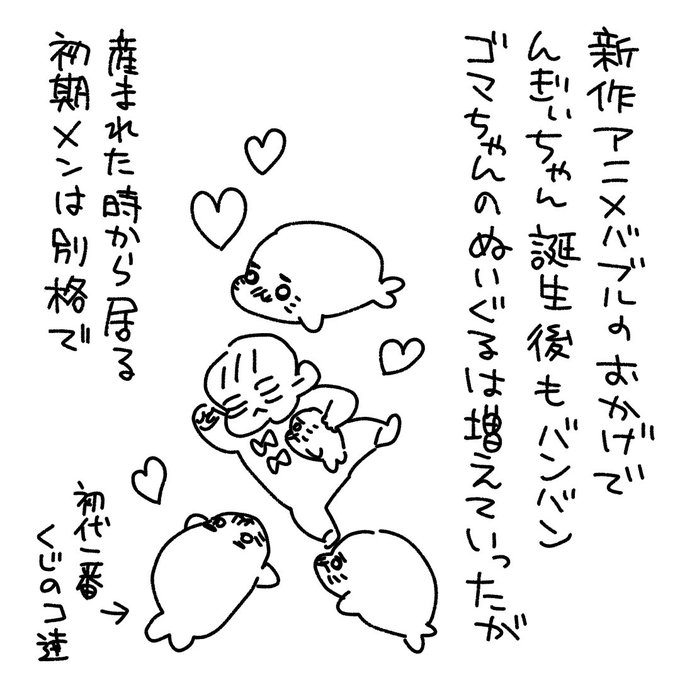 新作アニメバブルのおかげで
んぎぃちゃん誕生後もバンバン
ゴマちゃんのぬいぐるは増えていったが
産まれた時から居る
初期メンは別格で
初代一番
くじのコ達